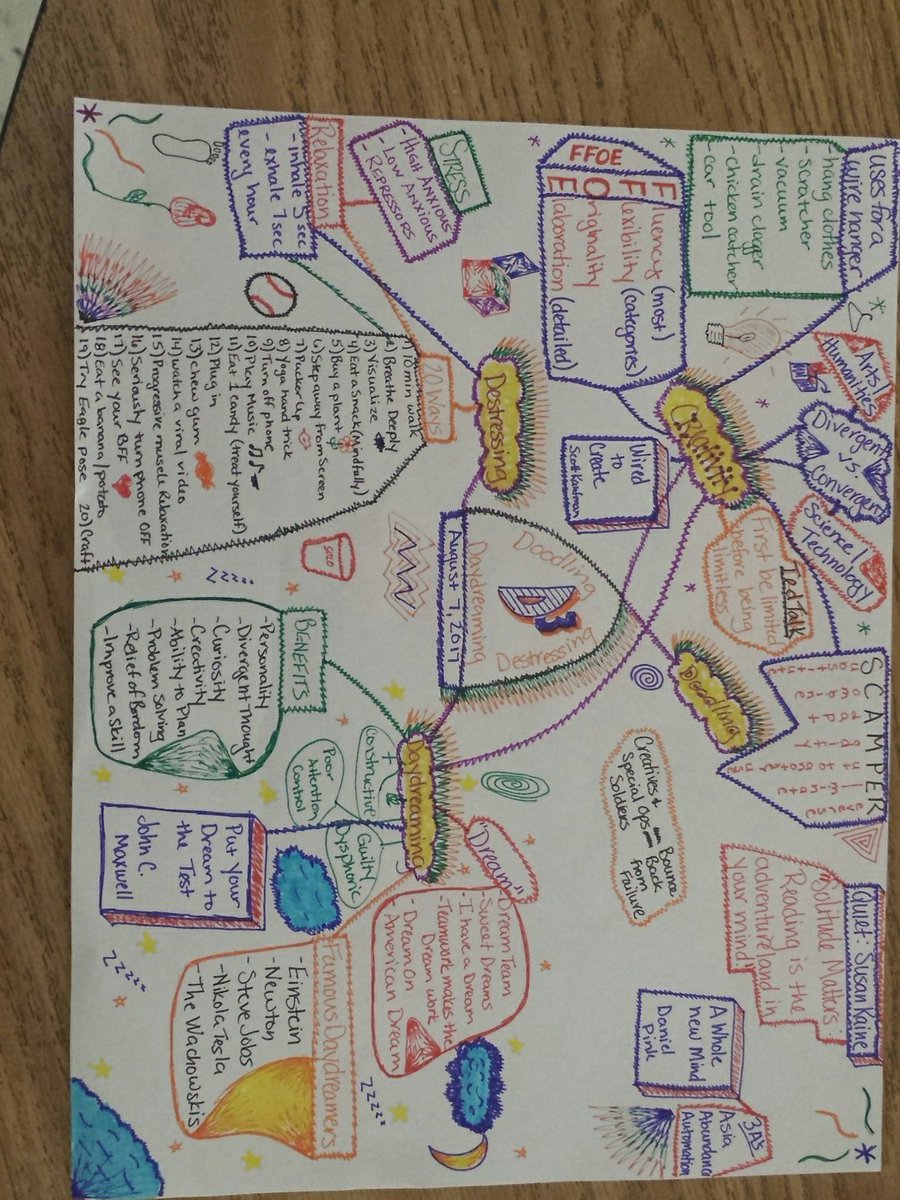 uses for a
wire hanger
hang clothes
- scratcher
- vacuum
- drain clogger
- chicken catcher
- car tool
FFOE
Fluency (most)
Flexibility (categories)
Originality
Elaboration (detailed)
STRESS
- High Anxious
- Low Anxious
- REPRESSORS
Relaxation
- inhale 5 sec
- exhale 7 sec
every hour
Arts/
Humanities
Divergent
vs
Convergent
Science/
Technology
Creativity
Wired
to
Create
Scott Kaufman
Ted Talk
First be limited
before being
limitless
SCAMPER
Destressing
20 Ways
1) 10 min walk
2) Breathe Deeply
3) Visualize
4) Eat a Snack (Mindfully)
5) Buy a plant
6) Step away from Screen
7) Pucker Up
8) Yoga hand trick
9) Turn off phone
10) Play Music
11) Eat 1 Candy (treat yourself)
12) Plug in
13) chew gum
14) watch a viral video
15) Progressive muscle Relaxation
16) Seriously turn phone OFF
17) See your BFF
18) Eat a banana/potato
19) Try Eagle pose 20) Craft
SOLO
Doodling
D
Destressing
Daydreaming
August 7, 2017
Doodling
Creatives +
Special Ops
Solders
Bounce
Back
from
Failure
Quiet: Susan Kaine
"Solitude Matters"
Reading is the
adventureland in
your mind!
A Whole
new Mind
Daniel
Pink
3 A's
Asia
Abundance
Automation
Daydreaming
+
Constructive
Poor
Attention
Control
Guilty
Dysphoric
BENEFITS
- Personality
- Divergent Thought
- Curiosity
- Creativity
- Ability to Plan
- Problem solving
- Relief of Bordom
- Improve a skill
Put Your
Dream to
the Test
John C.
Maxwell
"Dream"
- Dream Team
- Sweet Dreams
- I have a Dream
- Teamwork makes the
Dream work
- Dream on
- American Dream
Famous Daydreamers
- Einstein
- Newton
- Steve Jobs
- Nikola Tesla
- The Wachowskis
zzzzz
zzzzz
zzzzz